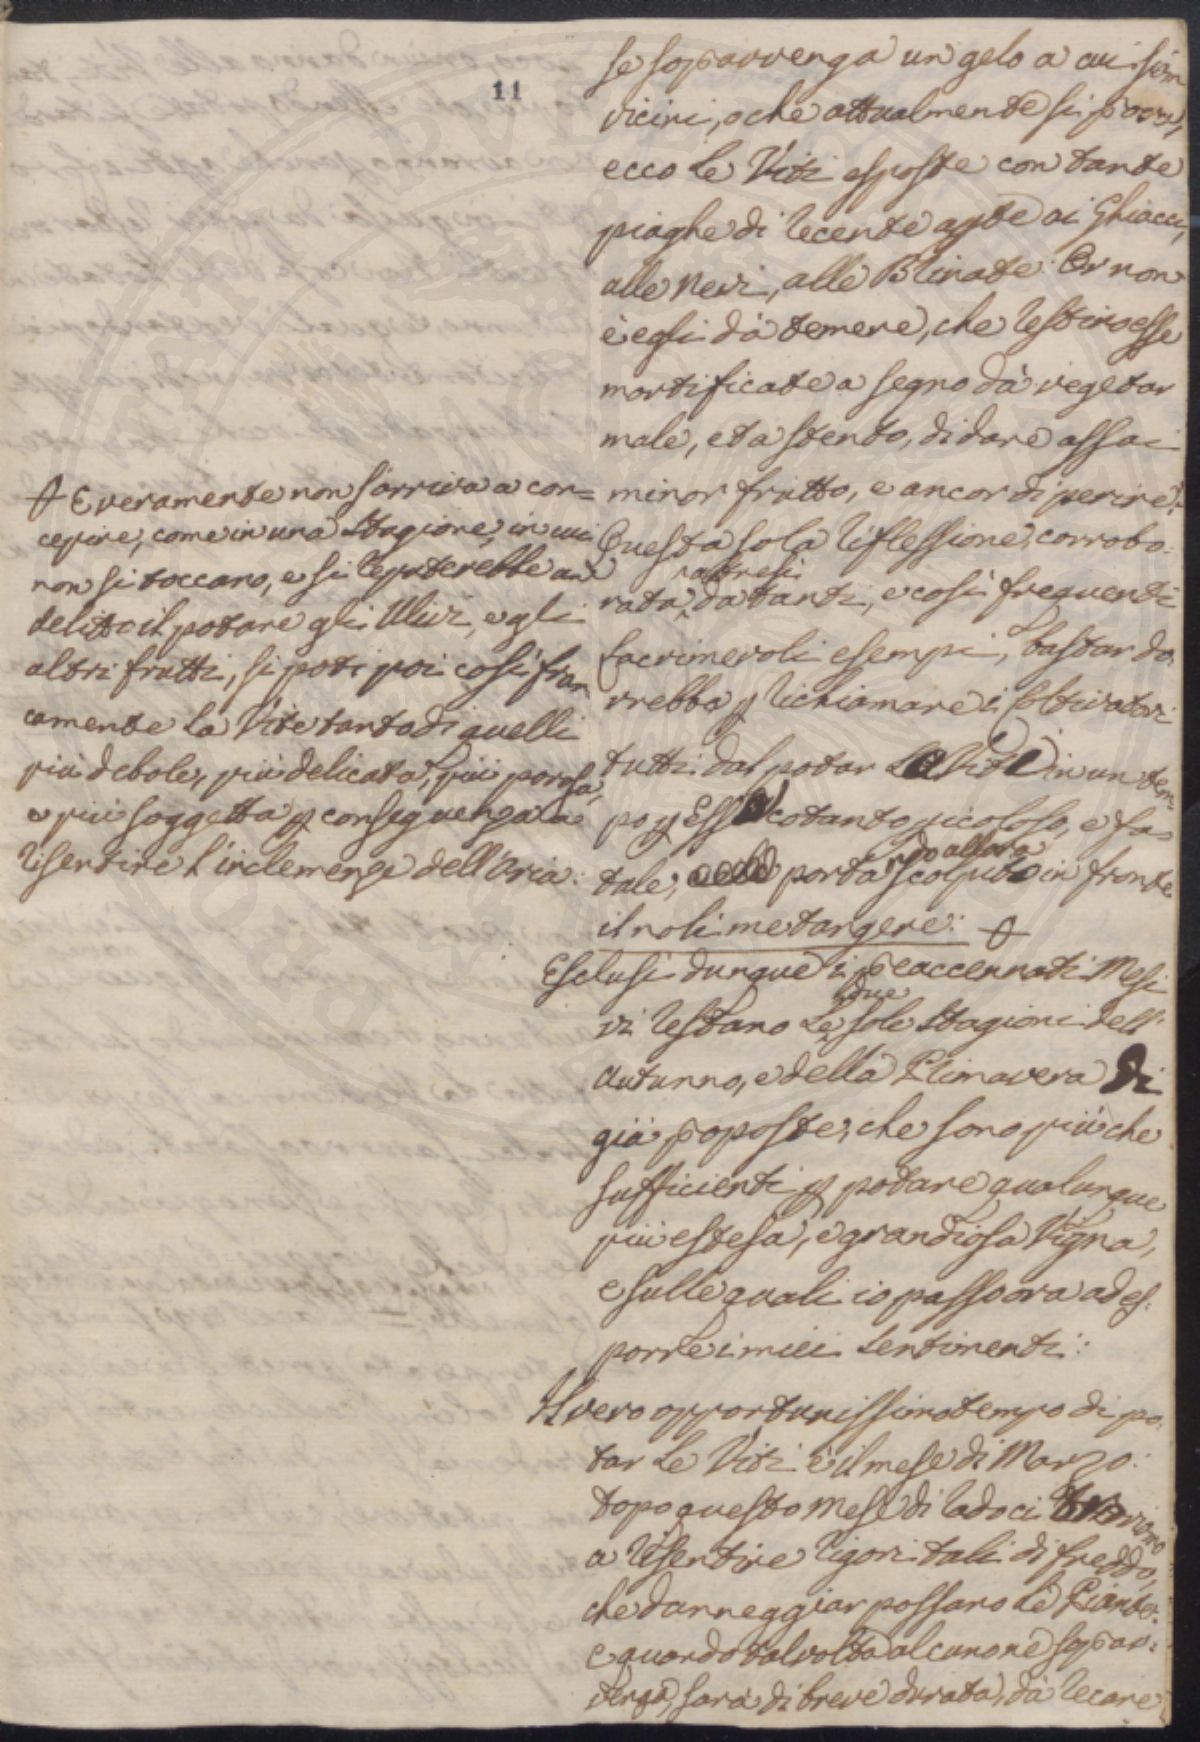 11
se sopravvenga un gelo a cui siam
vicini, o che attualmente si provi,
ecco le Viti esposte con tante
piaghe di recente apte ai Ghiacci,
alle Nevi, alle Brinate: Or non
è egli dà temere, che restino esse
mortificate a segno dà vegetar
male, et a stento, di dare assai
minor frutto, e ancor di perire?
Questa sola riflessione, corrobo=
rata altresì dà tanti, e così frequenti
lacrimevoli esempi, bastar do=
vrebbe p richiamare i Coltivatori
tutti dal potar le Viti in un tem=
po p Esse cotanto picoloso, e fa=
tale, portando allora scolpito in fronte
il noli me tangere: 
Esclusi dunque i preaccennati Mesi
vi restano le due sole Stagioni dell'
Autunno, e della Primavera di
già proposte, che sono più che
sufficienti p potare qualunque
più estesa, e grandiosa Vigna,
e sulle quali io passo ora ad es=
porre i miei sentimenti:
Il vero opportunissimo tempo di po=
tar le Viti è il mese di Marzo:
dopo questo Mese di rado ci
a risentire rigori tali di freddo,
che danneggiar possano le Piante:
e quando talvolta alcuno ne soprav=
venga, sarà di breve durata, dà recare
E veramente non s'arriva a con=
cepire, come in una Stagione, in cui
non si toccano, e si reputerebbe un
delitto il potare gli Ulivi, e gli
altri frutti, si poti poi così fran
camente la Vite tanto di quelli
più debole, più delicata, più porosa,
e più soggetta p conseguenza a
risentire l'inclemenze dell'Aria: